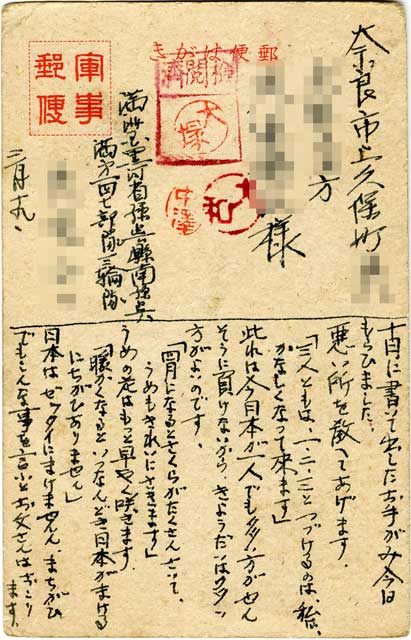 郵便はがき
軍事
郵便
検閲済
大塚
中澤
奈良市上久保町
方
様
満洲国黒河省孫呉縣南孫呉
部隊三輪隊
三月十九、
十日に書いて出したお手がみ今日
もらひました、
悪い所を教へてあげます。
「三人ともは、一、二、三とつづけるのは、私は
かなしくなって来ます」
此れは今日本が一人でも多い方がせん
そうに負けないから、きようだいは多い
方がよいのです。
「四月になるとさくらがたくさんさいて、
うめもきれいにさきます」
うめの花はもっと早やく咲きます。
「暖かくなるといつなんどき日本がまける
にちがひありません」
日本はゼッタイにまけません、まちがひ
でもこんな事を言ふとお父さんはおこり
ます。